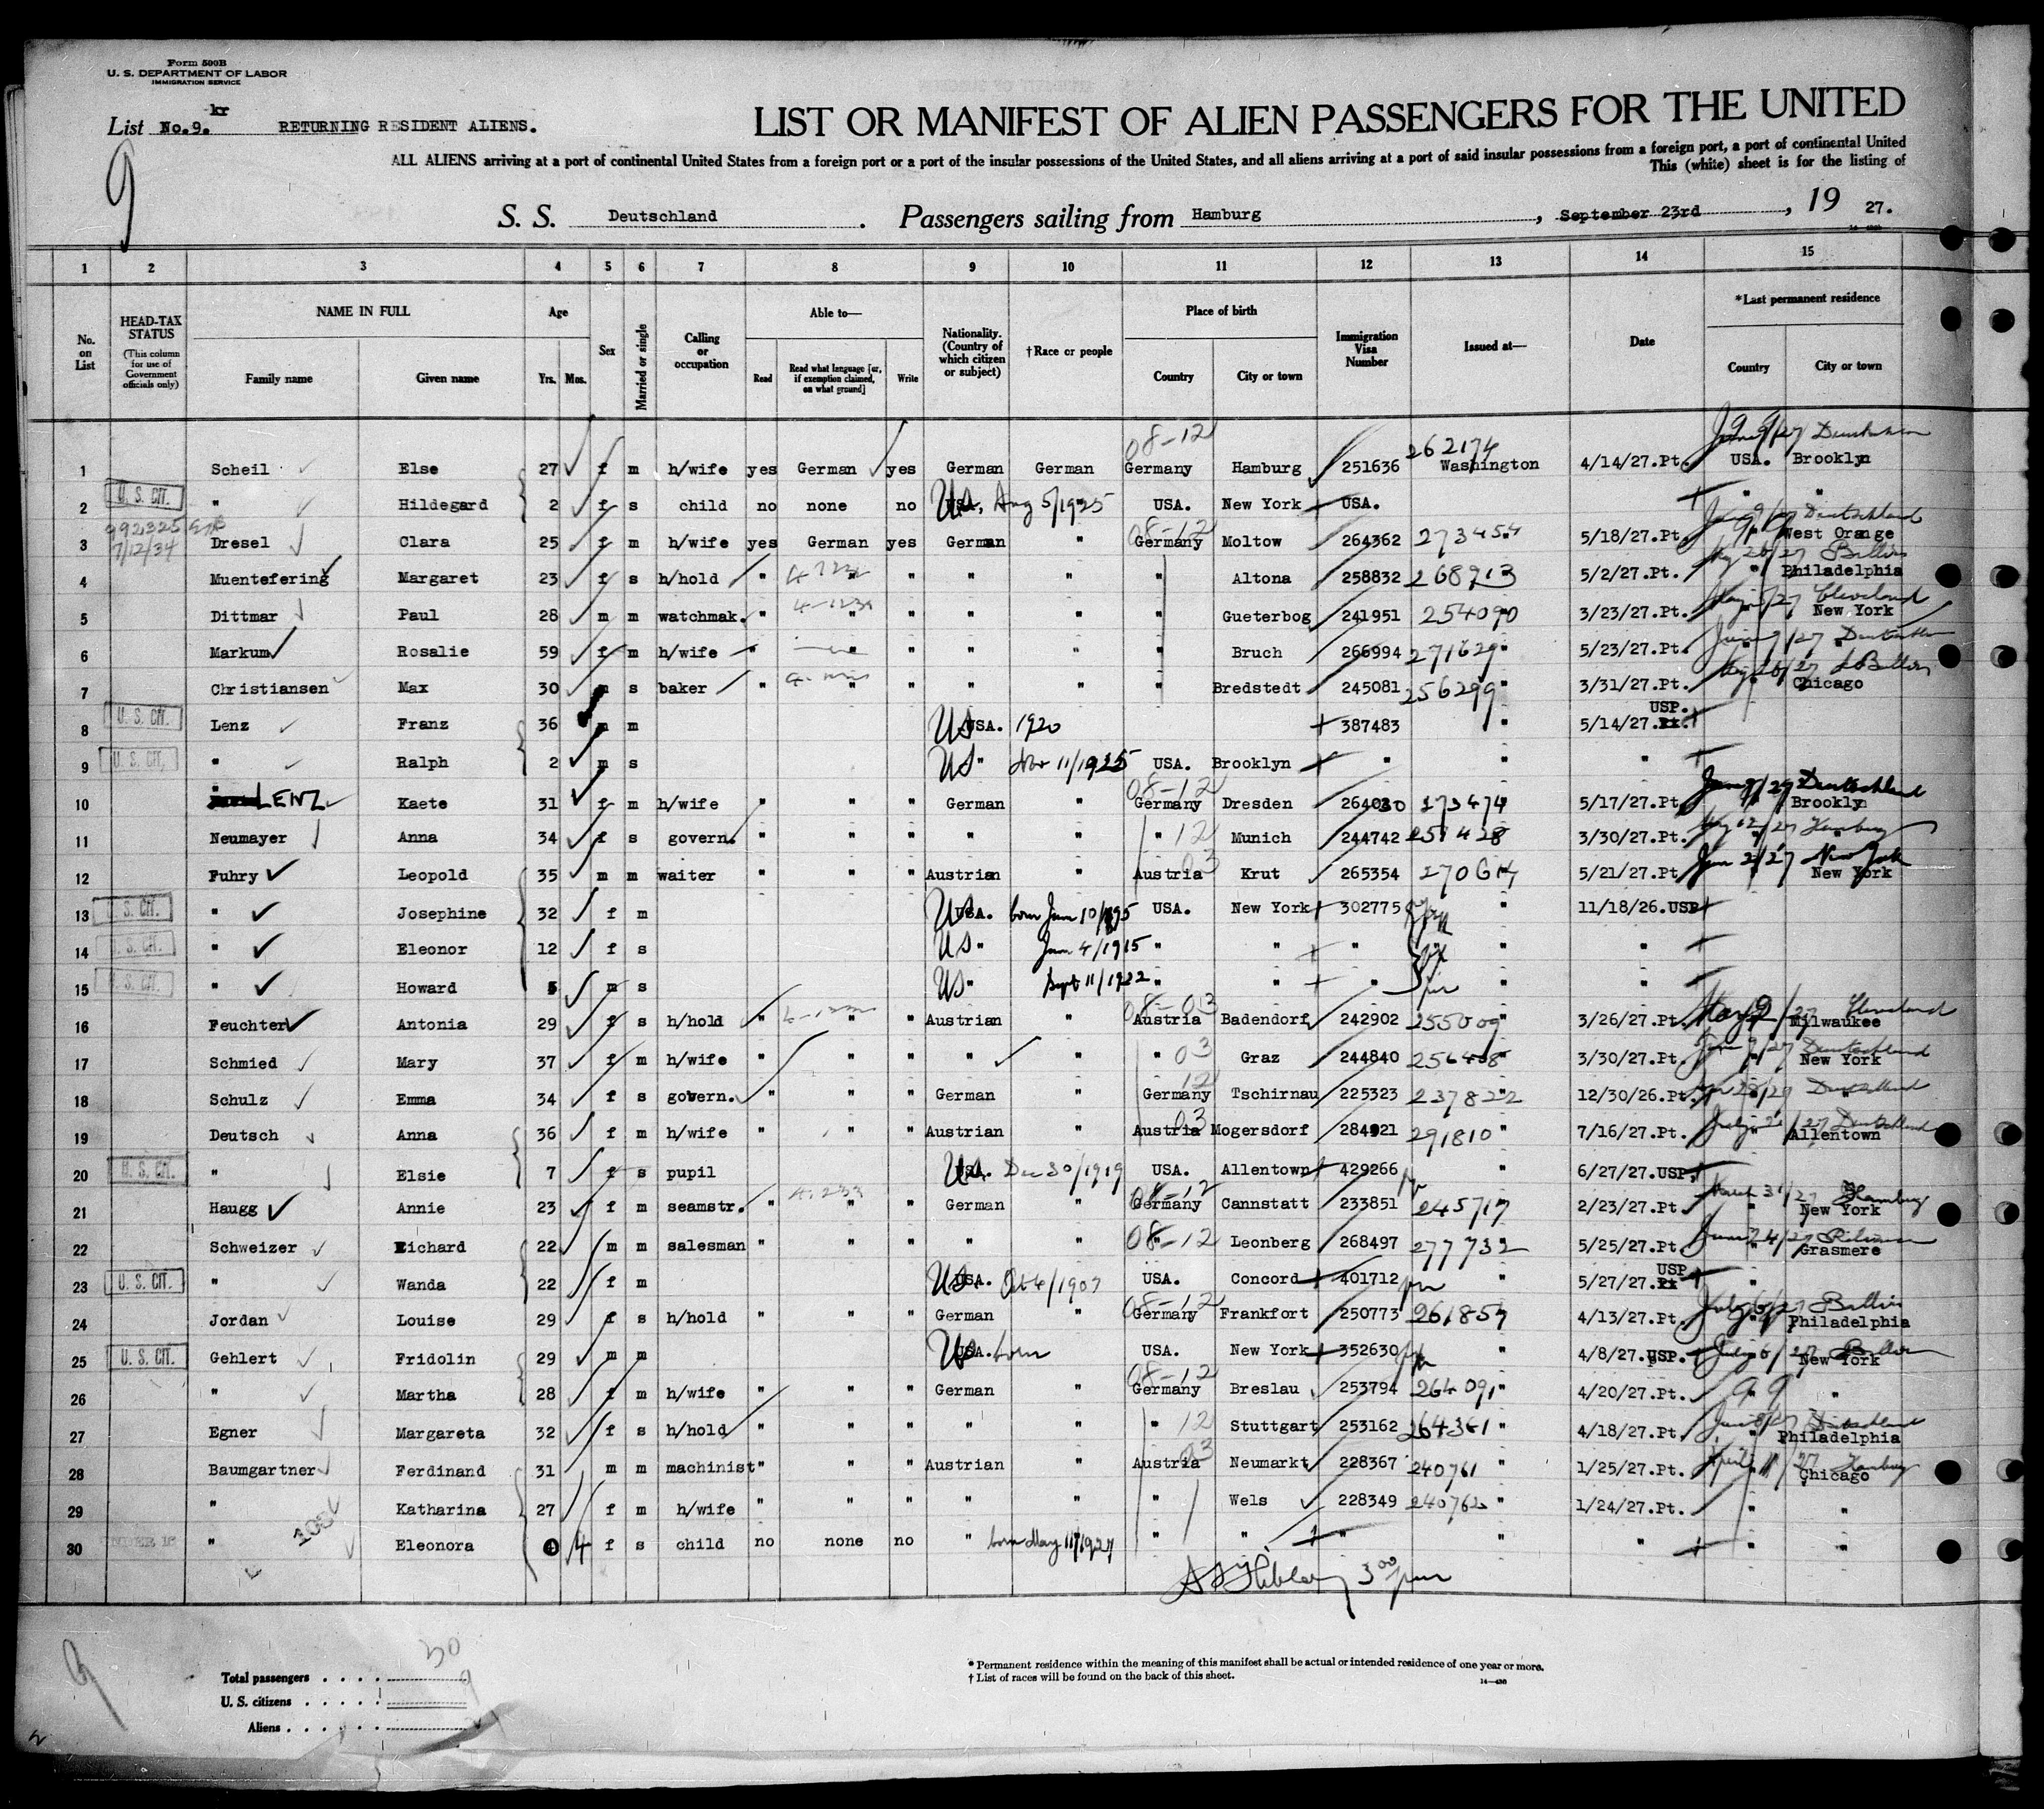 Form 500B
U. S. DEPARTMENT OF LABOR
IMMIGRATION SERVICE
kr
List No.9. RETURNING RESIDENT ALIENS.
LIST OR MANIFEST OF ALIEN PASSENGERS FOR THE UNITED
9
ALL ALIENS arriving at a port of continental United States from a foreign port or a port of the insular possessions of the United States, and all aliens arriving at a port of said insular possessions from a foreign port, a port of continental United
This (white) sheet is for the listing of
S. S. Deutschland. Passengers sailing from Hamburg, September 23rd, 19 27.
1 2 3 4 5 6 7 8 9 10 11 12 13 14 15
No. on List
HEAD-TAX STATUS (This column for use of Government officials only)
NAME IN FULL Family name Given name
Age Yrs. Mos.
Sex
Married or single
Calling or occupation
Able to— Read Read what language [or, if exemption claimed, on what ground] Write
Nationality. (Country of which citizen or subject)
†Race or people
Place of birth Country City or town
Immigration Visa Number
Issued at—
Date
*Last permanent residence Country City or town
08-12 262174
1 Scheil Else 27 f m h/wife yes German yes German German Germany Hamburg 251636 Washington 4/14/27.Pt. USA. Brooklyn
2 U. S. CIT. " Hildegard 2 f s child no none no USA. Aug 5/1925 USA. New York USA. " "
992325
3 7/12/34 Dresel Clara 25 f m h/wife yes German yes German " 08-12 Germany Moltow 264362 273454 " 5/18/27.Pt. " West Orange
4 Muentefering Margaret 23 f s h/hold " " " " " " Altona 258832 268913 5/2/27.Pt. " Philadelphia
5 Dittmar Paul 28 m m watchmak. " " " " " " Gueterbog 241951 254090 3/23/27.Pt. New York
6 Markum Rosalie 59 f m h/wife " " " " " " Bruch 266994 271629 " 5/23/27.Pt. " "
7 Christiansen Max 30 m s baker " " " " " " Bredstedt 245081 256299 3/31/27.Pt. " Chicago
8 U. S. CIT. Lenz Franz 36 m m US USA. 1920 387483 " 5/14/27. USP.
9 U. S. CIT. " Ralph 2 m s US " Nov 11/1925 USA. Brooklyn " " "
10 LENZ Kaete 31 f m h/wife " " " German " 08-12 Germany Dresden 264030 273474 5/17/27.Pt. Brooklyn
11 Neumayer Anna 34 f s govern. " " " " " " 12 Munich 244742 251428 3/30/27.Pt. " "
12 Fuhry Leopold 35 m m waiter " " " Austrian " Austria 03 Krut 265354 5/21/27.Pt. New York
13 U. S. CIT. " Josephine 32 f m US USA. born Jun 10/1895 USA. New York 302775 " 11/18/26.USP
14 U. S. CIT. " Eleonor 12 f s US " Jan 4/1915 " " " " "
15 U. S. CIT. " Howard 5 m s US " Sept 11/1922 " " " " "
16 Feuchter Antonia 29 f s h/hold " " " Austrian " 08-03 Austria Badendorf 242902 255009 " 3/26/27.Pt. Milwaukee
17 Schmied Mary 37 f m h/wife " " " " " " 03 Graz 244840 256408 3/30/27.Pt. " New York
18 Schulz Emma 34 f s govern. " " " German " Germany 12 Tschirnau 225323 237822 12/30/26.Pt. " "
19 Deutsch Anna 36 f m h/wife " " " Austrian " Austria 03 Mogersdorf 284921 291810 " 7/16/27.Pt. " Allentown
20 U. S. CIT. " Elsie 7 f s pupil USA. Dec 30/1919 USA. Allentown 429266 " 6/27/27.USP.
21 Haugg Annie 23 f m seamstr. " " " German " 08-12 Germany Cannstatt 233851 245717 2/23/27.Pt. " New York
22 Schweizer Richard 22 m m salesman " " " " " 08-12 " Leonberg 268497 277732 5/25/27.Pt. " Grasmere
23 U. S. CIT. " Wanda 22 f m US USA. Oct 4/1907 USA. Concord 401712 " 5/27/27. USP " "
24 Jordan Louise 29 f s h/hold " " " German " 08-12 Germany Frankfort 250773 261857 4/13/27.Pt. " Philadelphia
25 U. S. CIT. Gehlert Fridolin 29 m m USA. born USA. New York 352630 " 4/8/27.USP. " New York
26 " Martha 28 f m h/wife " " " German " 08-12 Germany Breslau 253794 264091 " 4/20/27.Pt. " "
27 Egner Margareta 32 f s h/hold " " " " " " 12 Stuttgart 253162 264361 " 4/18/27.Pt. " Philadelphia
28 Baumgartner Ferdinand 31 m m machinist " " " Austrian " Austria 03 Neumarkt 228367 240761 " 1/25/27.Pt. " Chicago
29 " Katharina 27 f m h/wife " " " " " " Wels 228349 240762 " 1/24/27.Pt. " "
30 UNDER 16 " Eleonora 4 f s child no none no " born May 11/1927 " " " " " " "
3 00/
30
Total passengers . . . .
U. S. citizens . . . . .
Aliens . . . . . .
9
* Permanent residence within the meaning of this manifest shall be actual or intended residence of one year or more.
† List of races will be found on the back of this sheet.